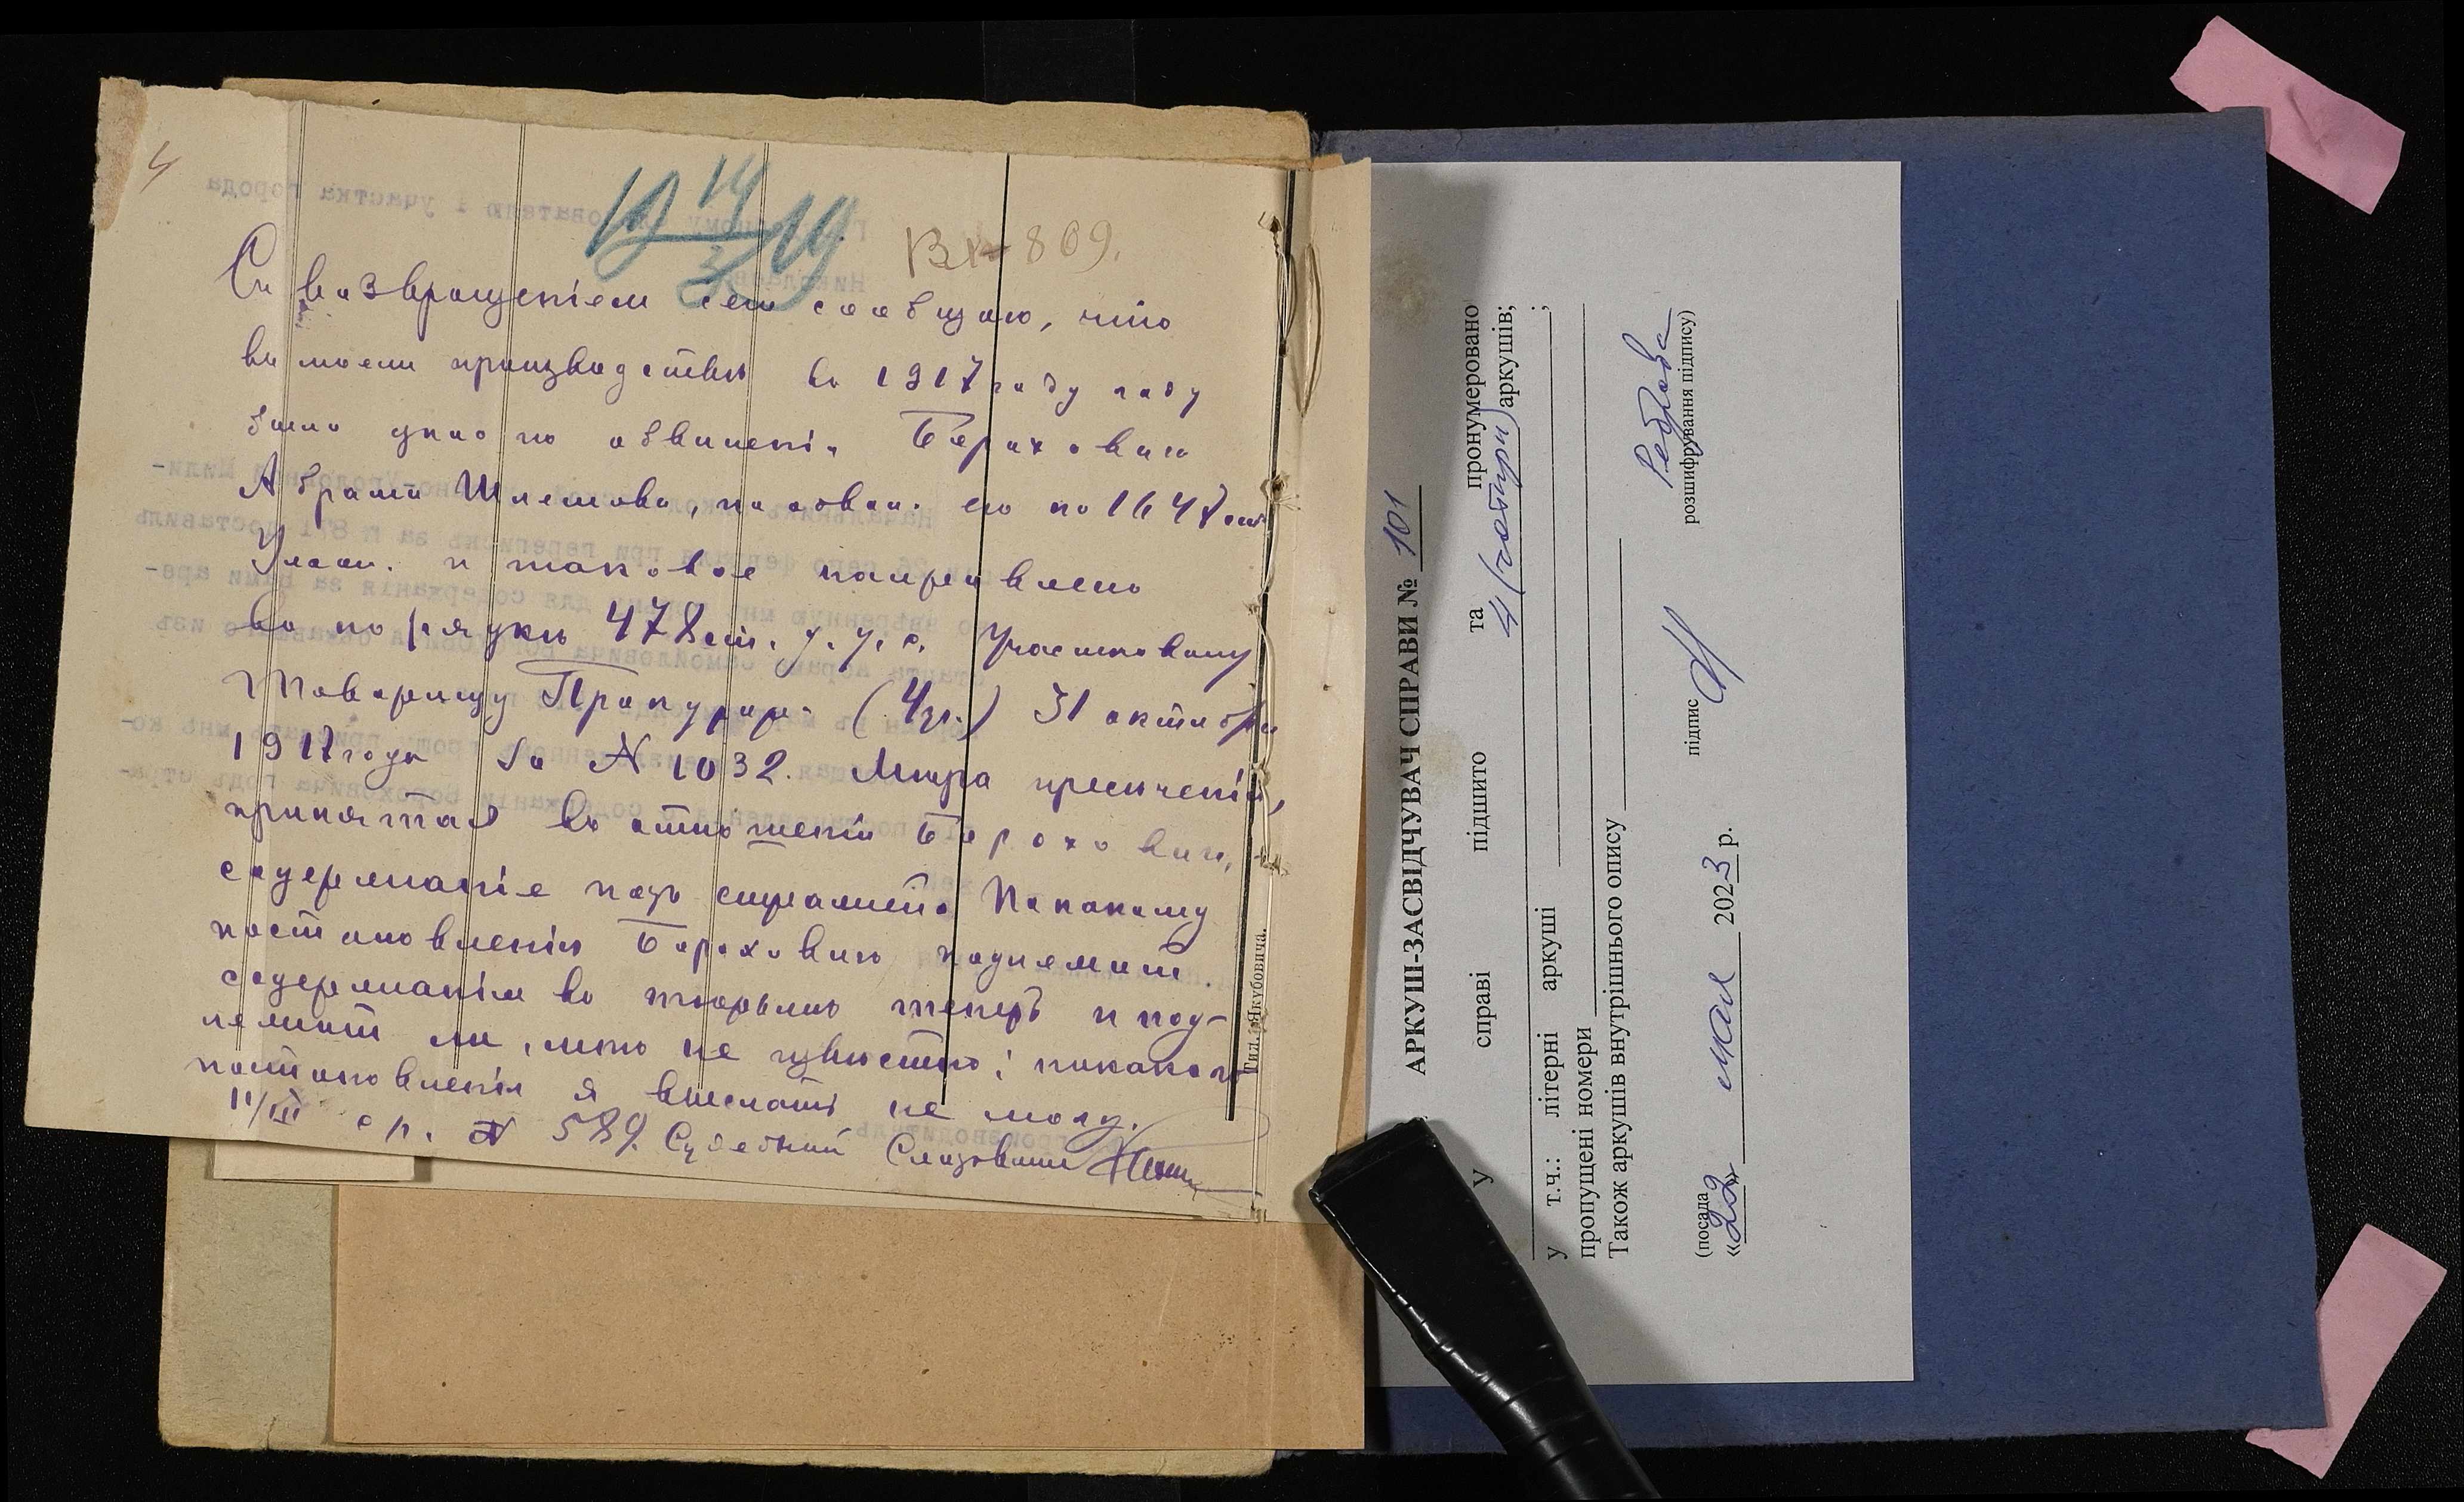 4
19 14/3 19
Вх 809.
Съ возвращеніемъ сего сообщаю, что
въ моемъ производствѣ въ 1917 году году
было дѣло по обвиненію Бороховича
Абрама Шлемова, по обвин. его по 1647 ст.
Улож. и таковое направлено
въ порядкѣ 478 ст. у. у. с. Участковому
Товарищу Прокурора (4 уч.) 31 октября
1917 года за № 1032. Мѣра пресѣченія,
принятая въ отношеніи Борохович,
содержаніе подъ стражей. По какому
постановленію Борохович подлежит
содержанію въ тюрьмѣ теперь и под-
лежит ли, мнѣ не извѣстно; никакого
постановленія я выслать не могу.
11/III с/г. № 589. Судебный Слѣдователь
Тип. Якубовича.
АРКУШ-ЗАСВІДЧУВАЧ СПРАВИ № 101
У справі підшито та пронумеровано
4 (чотири) аркушів;
у т.ч.: літерні аркуші ;
пропущені номери
Також аркушів внутрішнього опису
(посада підпис розшифрування підпису)
Реброва
«22» мая 2023 р.